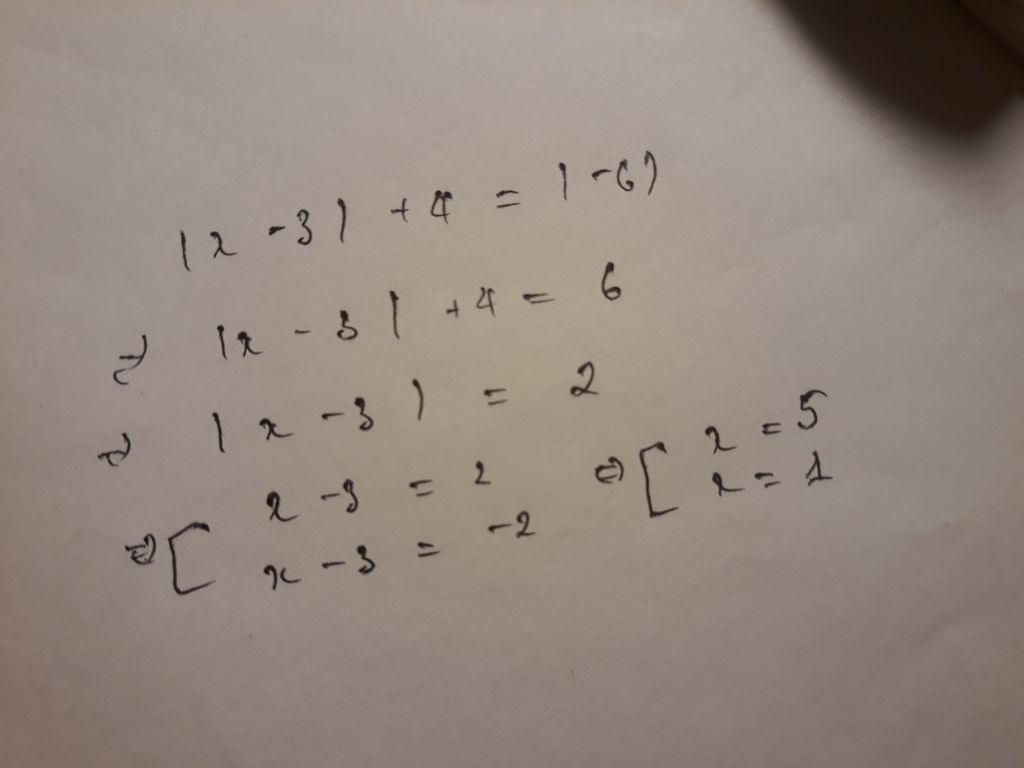 |x - 3| + 4 = |-6|
⇒ |x - 3| + 4 = 6
⇒ |x - 3| = 2
⇔ [ x - 3 = 2 ⇔ [ x = 5
x - 3 = -2 x = 1